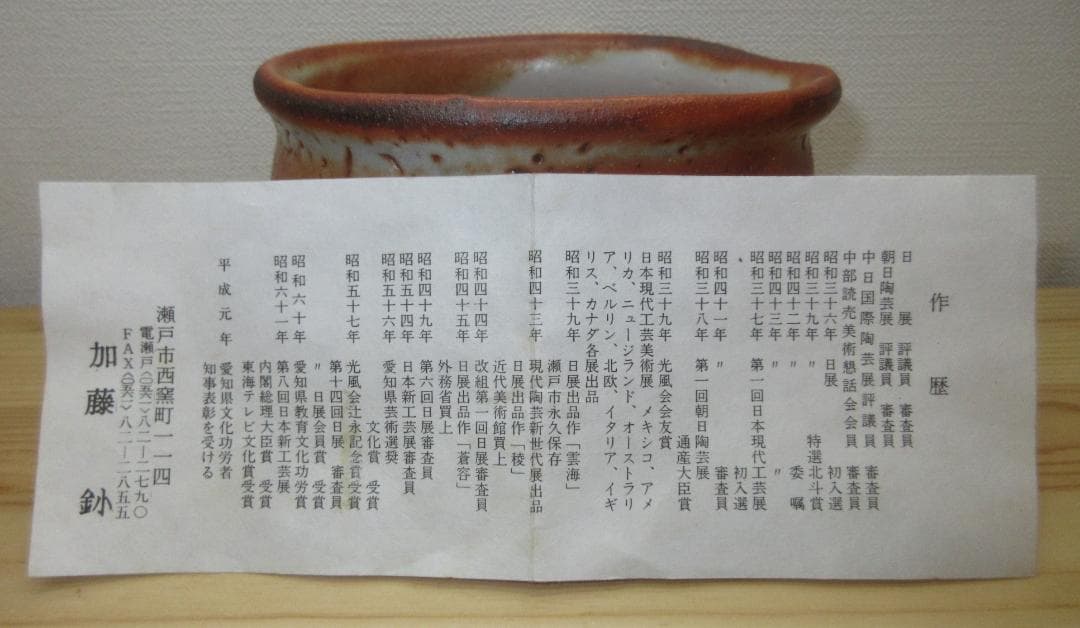 作歴
日展 評議員 審査員
朝日陶芸展 評議員 審査員
中日国際陶芸展評議員 審査員
中部読売美術懇話会会員 審査員
昭和三十六年 日展 初入選
昭和三十九年 〃 特選北斗賞
昭和四十二年 〃 委嘱
昭和四十三年 〃 〃
昭和三十七年 第一回日本現代工芸展 初入選
昭和四十一年 〃 審査員
昭和三十八年 第一回朝日陶芸展 通産大臣賞
昭和三十九年 光風会会友賞
日本現代工芸美術展 メキシコ、アメ
リカ、ニュージランド、オーストラリ
ア、ベルリン、北欧、イタリア、イギ
リス、カナダ各展出品
昭和三十九年 日展出品作「雲海」
瀬戸市永久保存
昭和四十三年 現代陶芸新世代展出品
日展出品作「稜」
近代美術館買上
昭和四十四年 改組第一回日展審査員
昭和四十五年 日展出品作「蒼容」
外務省買上
昭和四十九年 第六回日展審査員
昭和五十四年 日本新工芸展審査員
昭和五十六年 愛知県芸術選奨
文化賞 受賞
昭和五十七年 光風会辻永記念賞受賞
第十四回日展 審査員
〃 日展会員賞 受賞
昭和六十年 愛知県教育文化功労賞
昭和六十一年 第八回日本新工芸展
内閣総理大臣賞 受賞
東海テレビ文化賞受賞
平成元年 愛知県文化功労者
知事表彰を受ける
瀬戸市西窯町一一四
電瀬戸(〇五六一)八二—二七九〇
FAX(〇五六一)八二—二八五五
加藤 釥